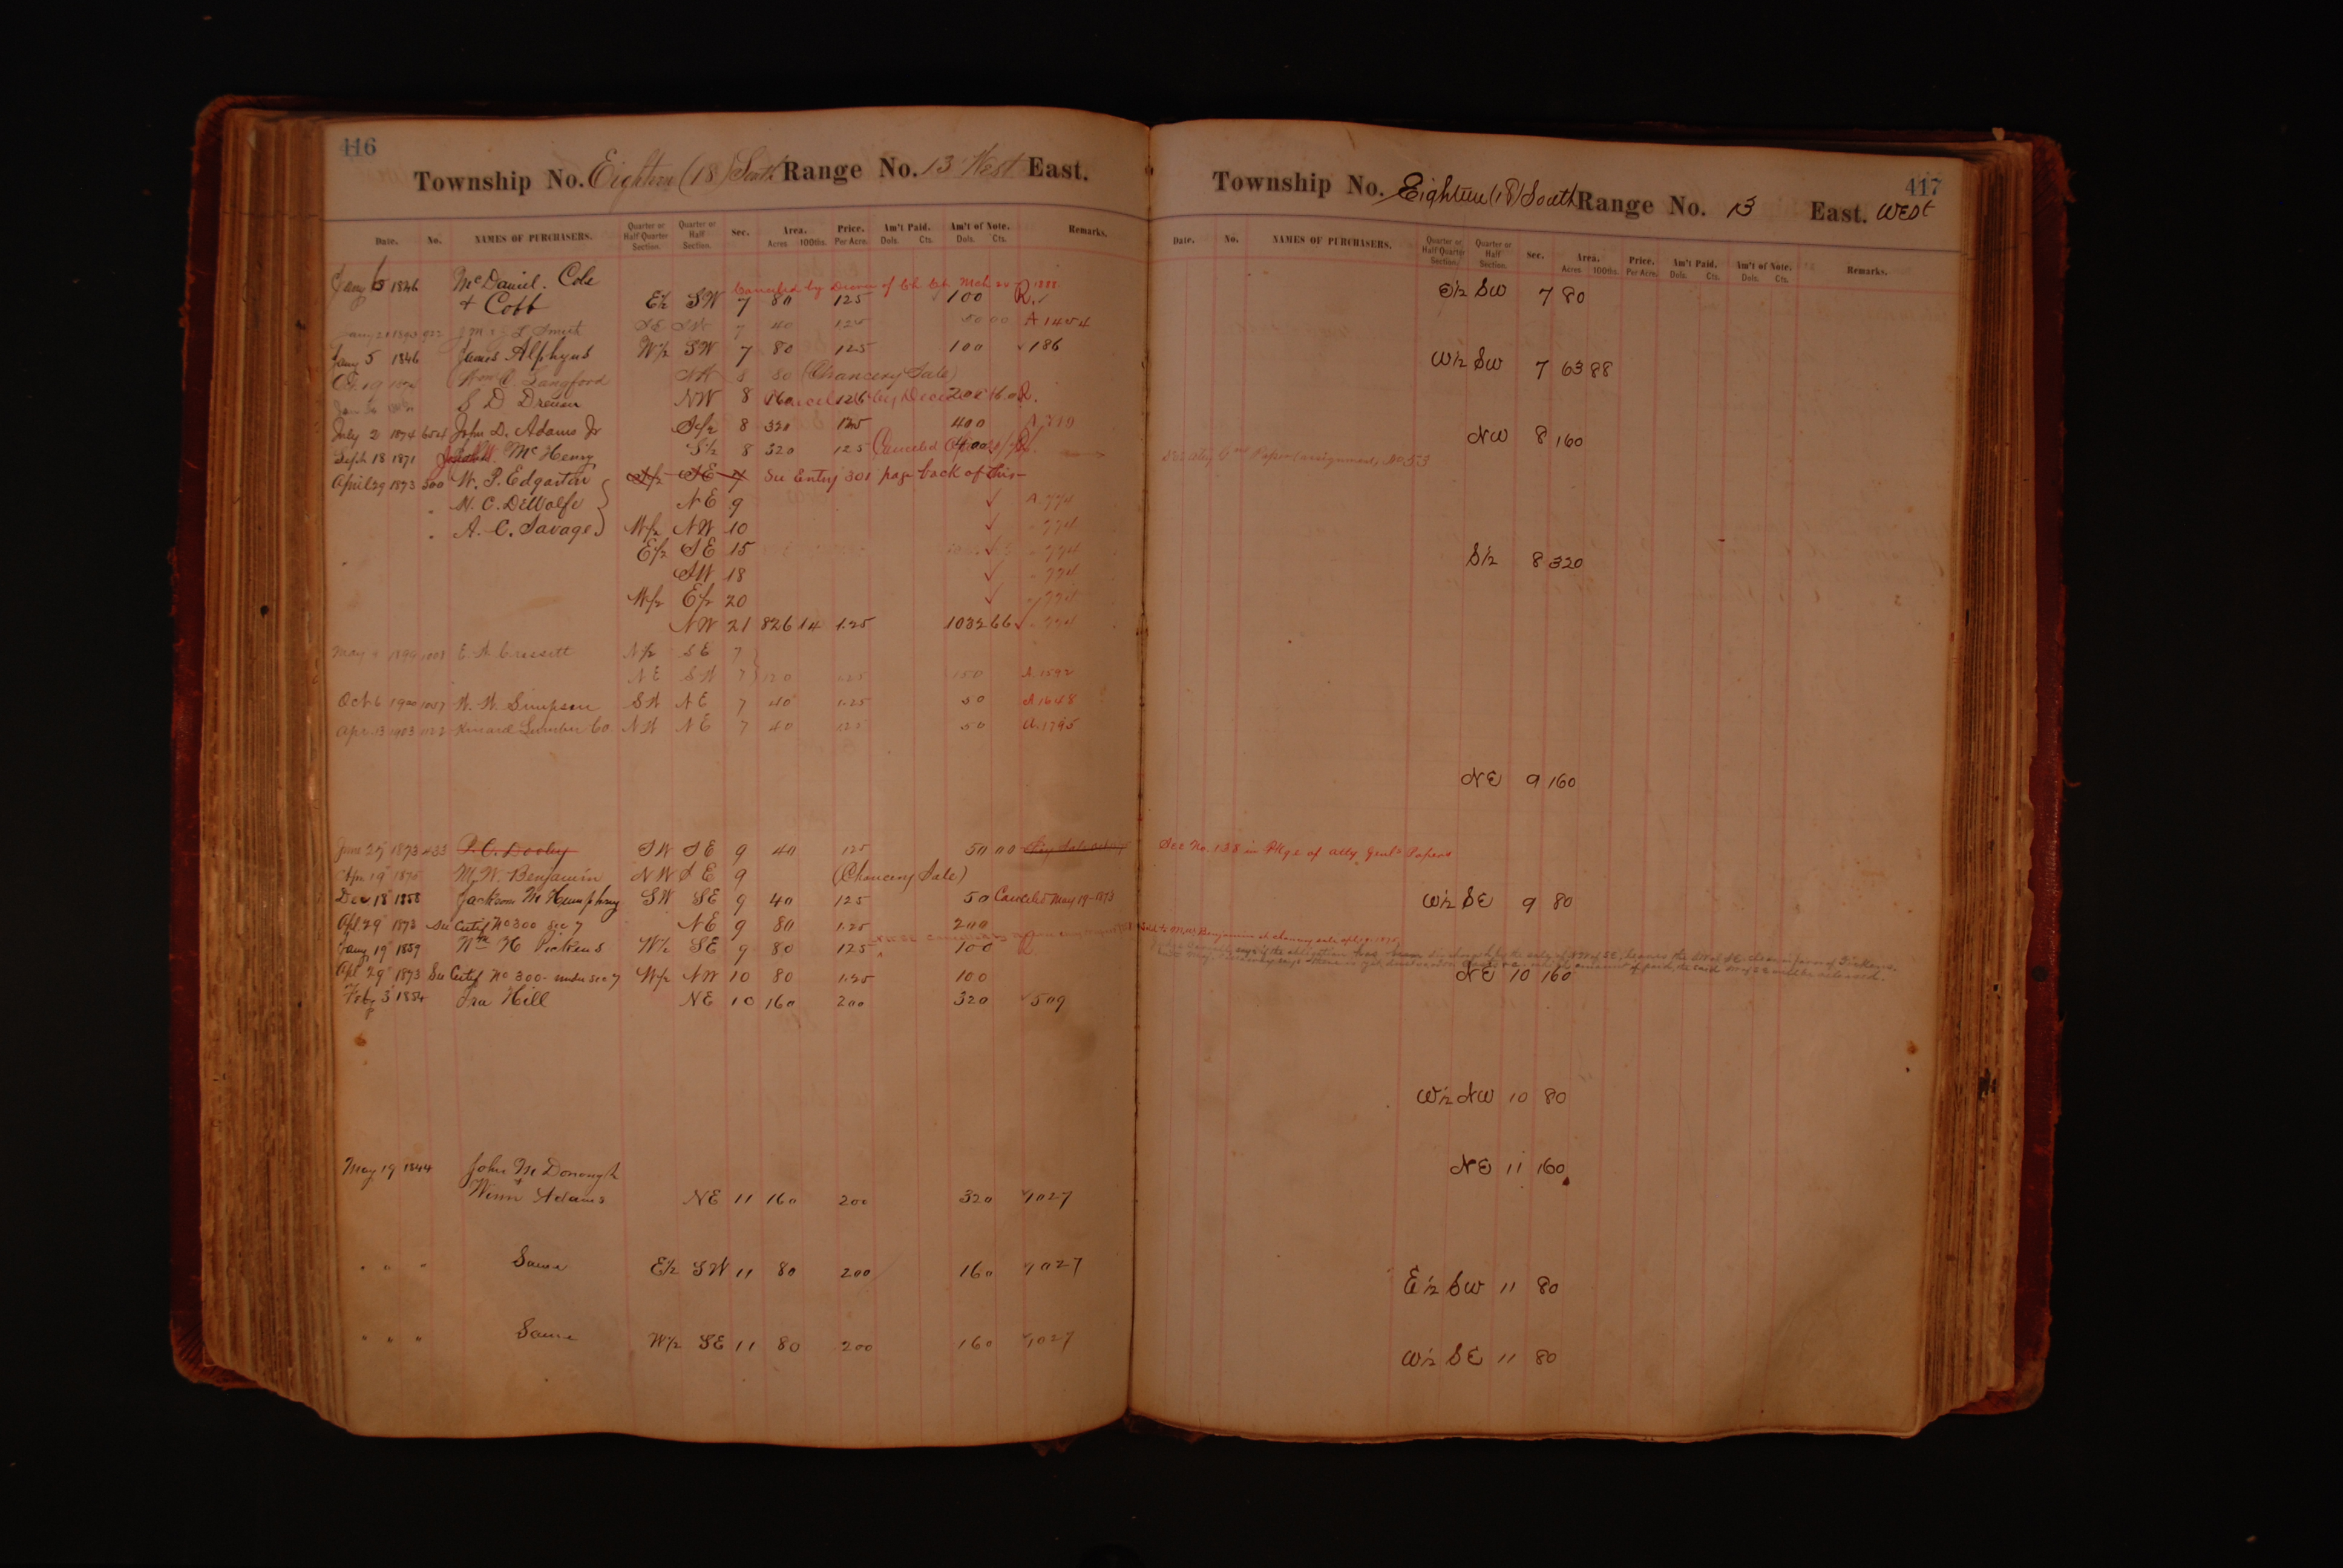 416
Township No. Eighteen (18) South Range No. 13 West East.
Date. No. NAMES OF PURCHASERS. Quarter or Half Quarter Section. Quarter or Half Section. Sec. Area. Acres 100ths. Price. Per Acre. Am't Paid. Dols. Cts. Am't of Note. Dols. Cts. Remarks.
Jany 5 1846 McDaniel. Cole
Canceled by Decree of Ch Ct Mch 1888
& Cobb E½ SW 7 80 125 100 R.
SE SW 7 40 125 50 00 A 1454
Jany 5 1846 James Alphyns W½ SW 7 80 125 100 186
Oct 19 Wm A. Langford NW 8 80 (Chancery Sale)
S D Drenen NW 8 160 125 R.
July 2 1874 John D. Adams Jr S½ 8 320 125 400
Sept 18 1871 McHenry S½ 8 320 125 Canceled 400 R
April 29 1873 300 W. P. Edgarton S½ SE 7 See Entry 301 page back of this
W. C. DeWolfe NE 9 A. 774
A. C. Savage W½ NW 10 774
E½ SE 15 774
SW 18 774
W½ E½ 20 774
NW 21 826 14 1.25 1032 66 774
May 9 1899 1008 E. A. Cressett N½ SE 7
NE SW 7 120 1.25 150 A. 1592
Oct 6 1900 1057 W. W. Simpson SW NE 7 40 1.25 50 A 1648
Apr. 13 1903 1122 Kinard Lumber Co. NW NE 7 40 1.25 50 A. 1795
June 25 1873 433 P. C. Dooley SW SE 9 40 125 50 00
Apr 19 1875 M. W. Benjamin NW SE 9 (Chancery Sale)
Dec 18 1858 Jackson M Humphrey SW SE 9 40 125 50 Canceled May 19-1873
Apl 29 1873 See Certif No 300 sec 7 NE 9 80 1.25 200
Jany 19 1859 Wm H Pickens W½ SE 9 80 125 100 R.
Apl 29 1873 See Certif No 300- under sec 7 W½ NW 10 80 1.25 100
Feby 3 1854 Ira Hill NE 10 160 200 320 509
May 19 1844 John McDonough
& Winn Adams NE 11 160 200 320 1027
" " " Same E½ SW 11 80 200 160 1027
" " " Same W½ SE 11 80 200 160 1027
417
Township No. Eighteen (18) South Range No. 13 East. West
Date. No. NAMES OF PURCHASERS. Quarter or Half Quarter Section. Quarter or Half Section. Sec. Area. Acres 100ths. Price. Per Acre. Am't Paid. Dols. Cts. Am't of Note. Dols. Cts. Remarks.
E½ SW 7 80
W½ SW 7 63 88
NW 8 160
See Atty Genl Papers assignment, No 53
S½ 8 320
NE 9 160
See No. 138 in Pkge of Atty Genl's Papers
W½ SE 9 80
Sold to M.W. Benjamin at chancery sale
NE 10 160
W½ NW 10 80
NE 11 160
E½ SW 11 80
W½ SE 11 80